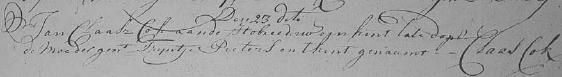 Den 23 dito
Jan Claasz Cok aande Stokeed zyn kint late dope
de Moeder gent Trijntje Pieters en t kent genaamt - Claas Cok